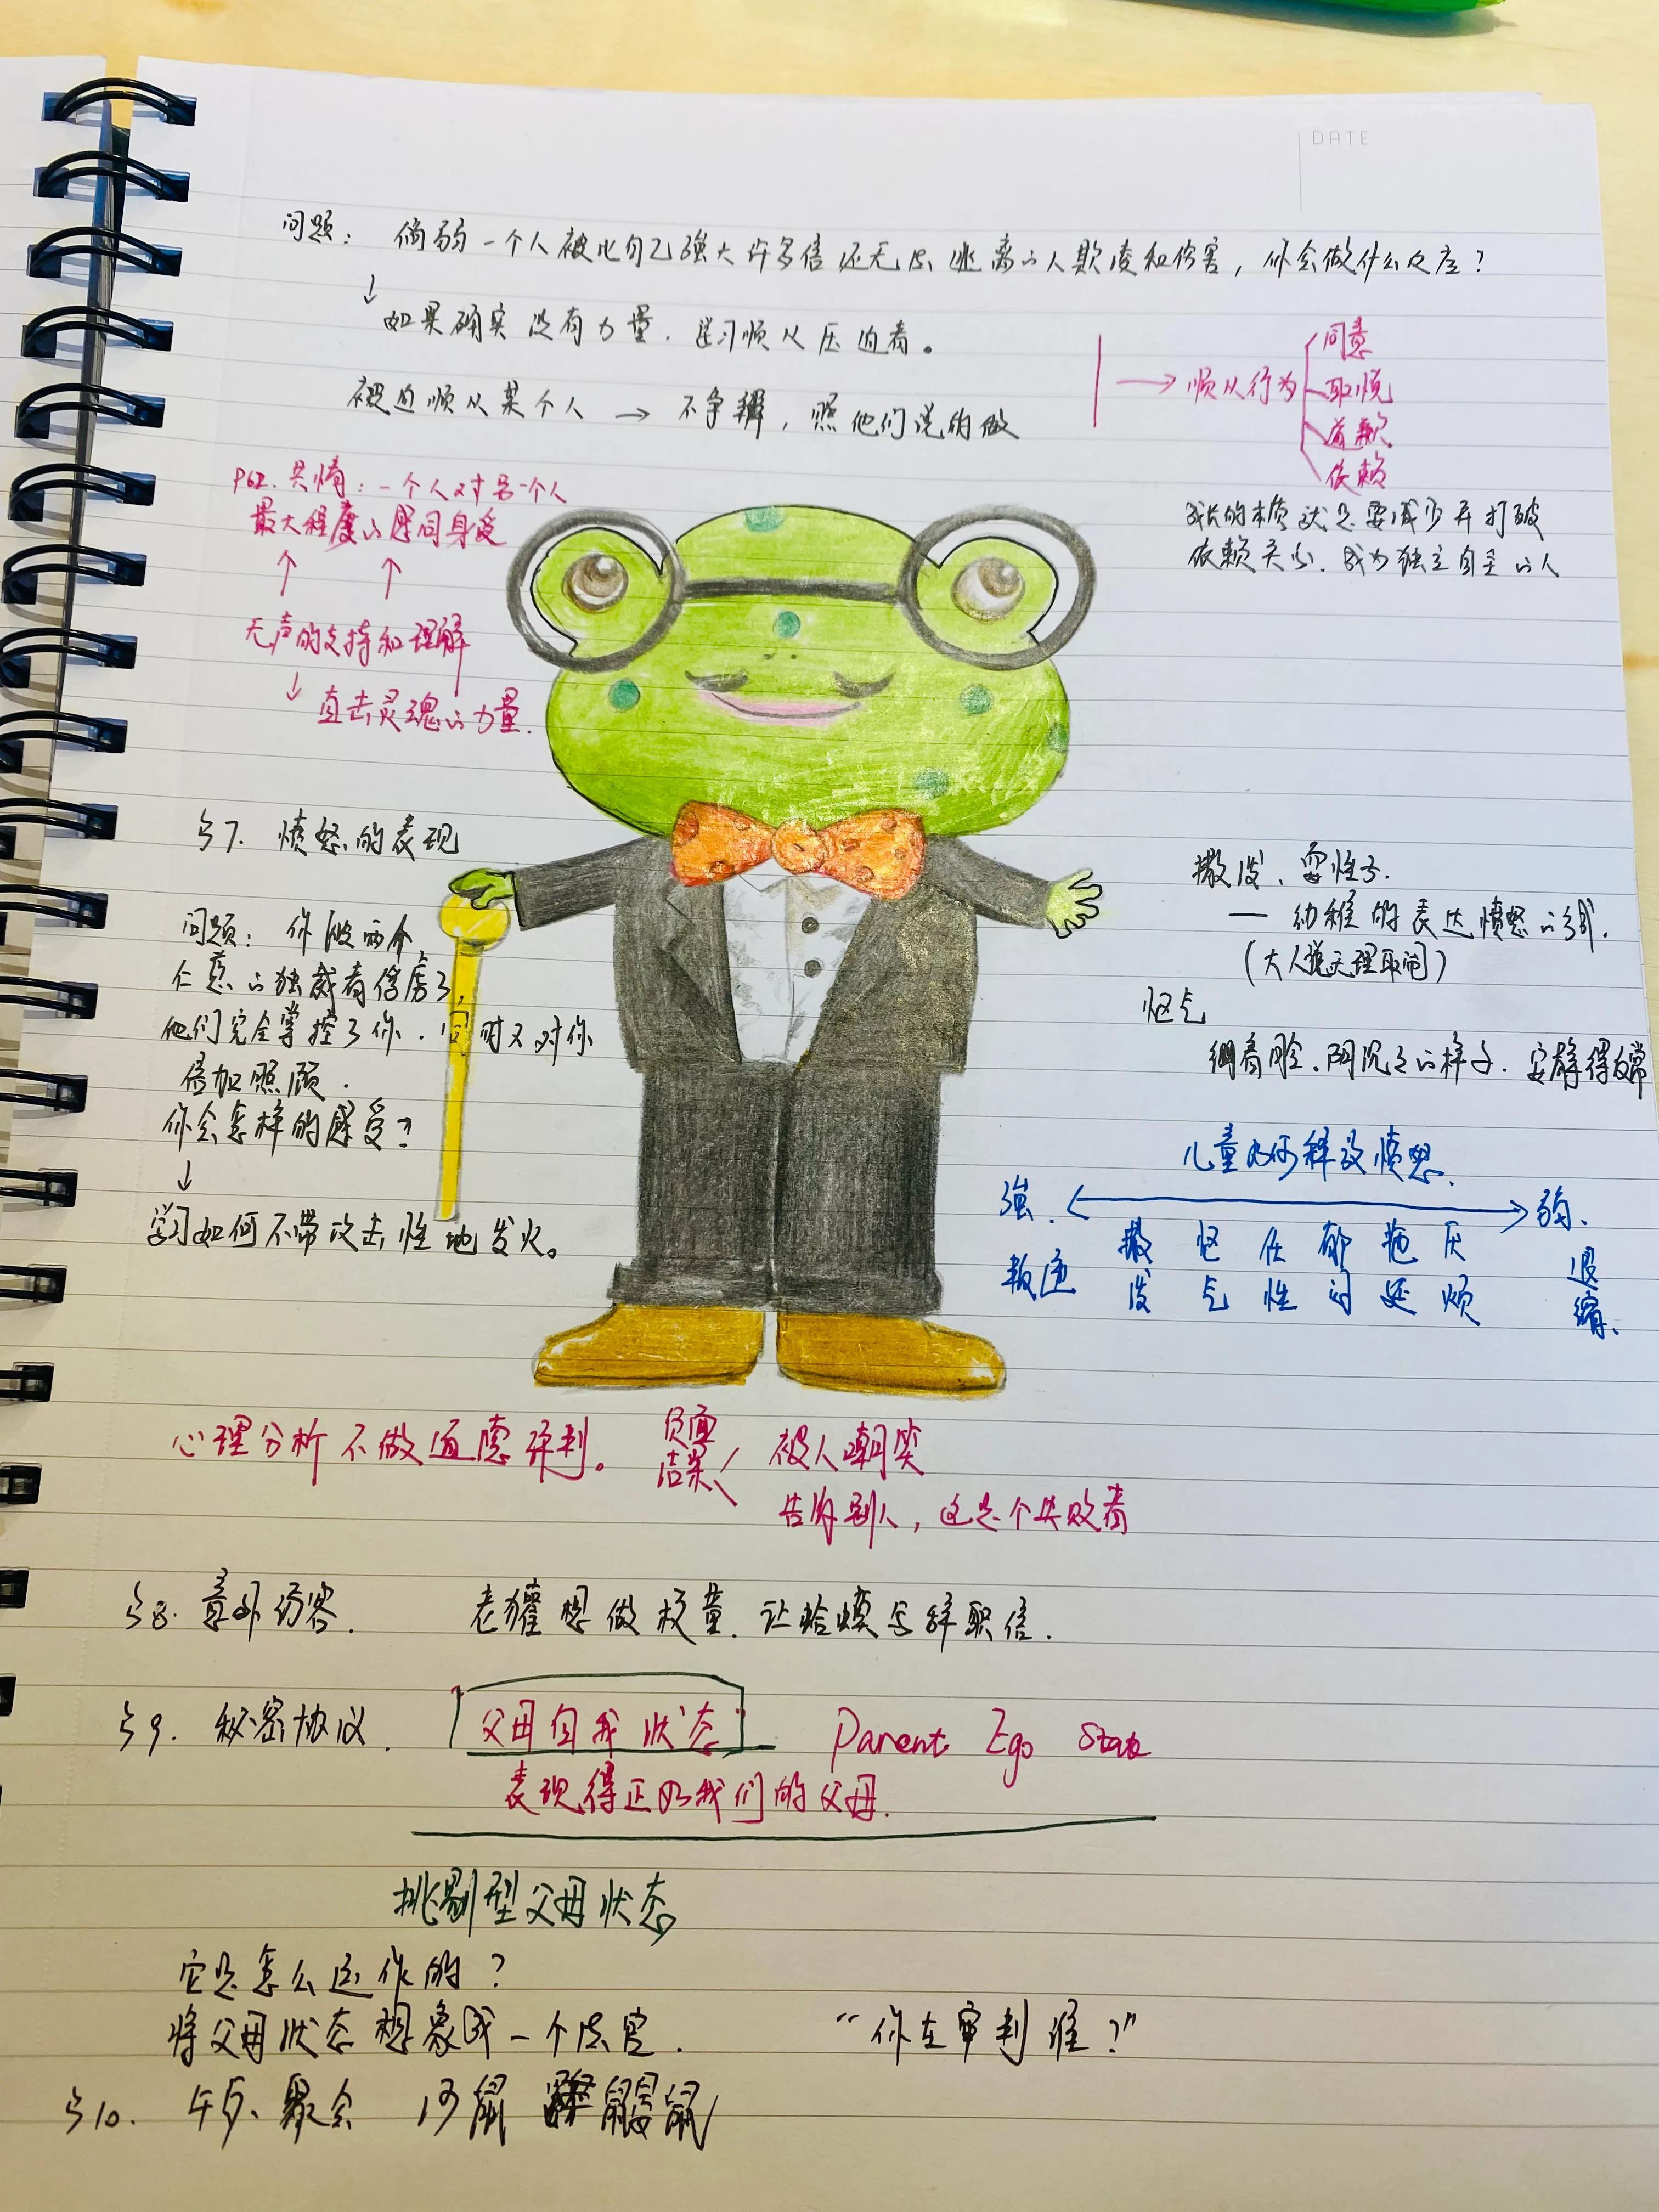 DATE
问题：倘弱一个人被比自己强大许多倍还无后逃离的人欺凌和伤害，你会做什么反应？
↓
如果确实没有力量，学习顺从压迫者。
被迫顺从某个人 → 不争辩，照他们说的做
→ 顺从行为
同意
取悦
道歉
依赖
成长的本质就是要减少并打破
依赖关系，成为独立自主的人
P62. 共情：一个人对另一个人
最大程度的感同身受
↑ ↑
无声的支持和理解
↓ 直击灵魂的力量.
§7. 愤怒的表现
问题：你被两个
仁慈的独裁者俘虏了，
他们完全掌控了你，同时又对你
倍加照顾.
你会怎样的感受？
↓
学习如何不带攻击性地发火。
撒泼、耍性子.
— 幼稚的表达愤怒的方式.
(大人说无理取闹)
怄气
绷着脸、阴沉沉的样子、安静得反常
儿童如何释放愤怒.
强. ↔ 弱、
叛逆 撒泼 怄气 任性 郁闷 拖延 厌烦 退缩、
心理分析不做道德评判。
负面结果
被人嘲笑
告诉别人，这是个失败者
§8. 意外访客. 老獾想做校董，让蛤蟆写辞职信.
§9. 秘密协议. 父母自我状态 Parent Ego State
表现得正如我们的父母.
挑剔型父母状态
它是怎么运作的？
将父母状态想象成一个法官. “你在审判谁？”
§10. 午后、聚会 河鼠 鼹鼠